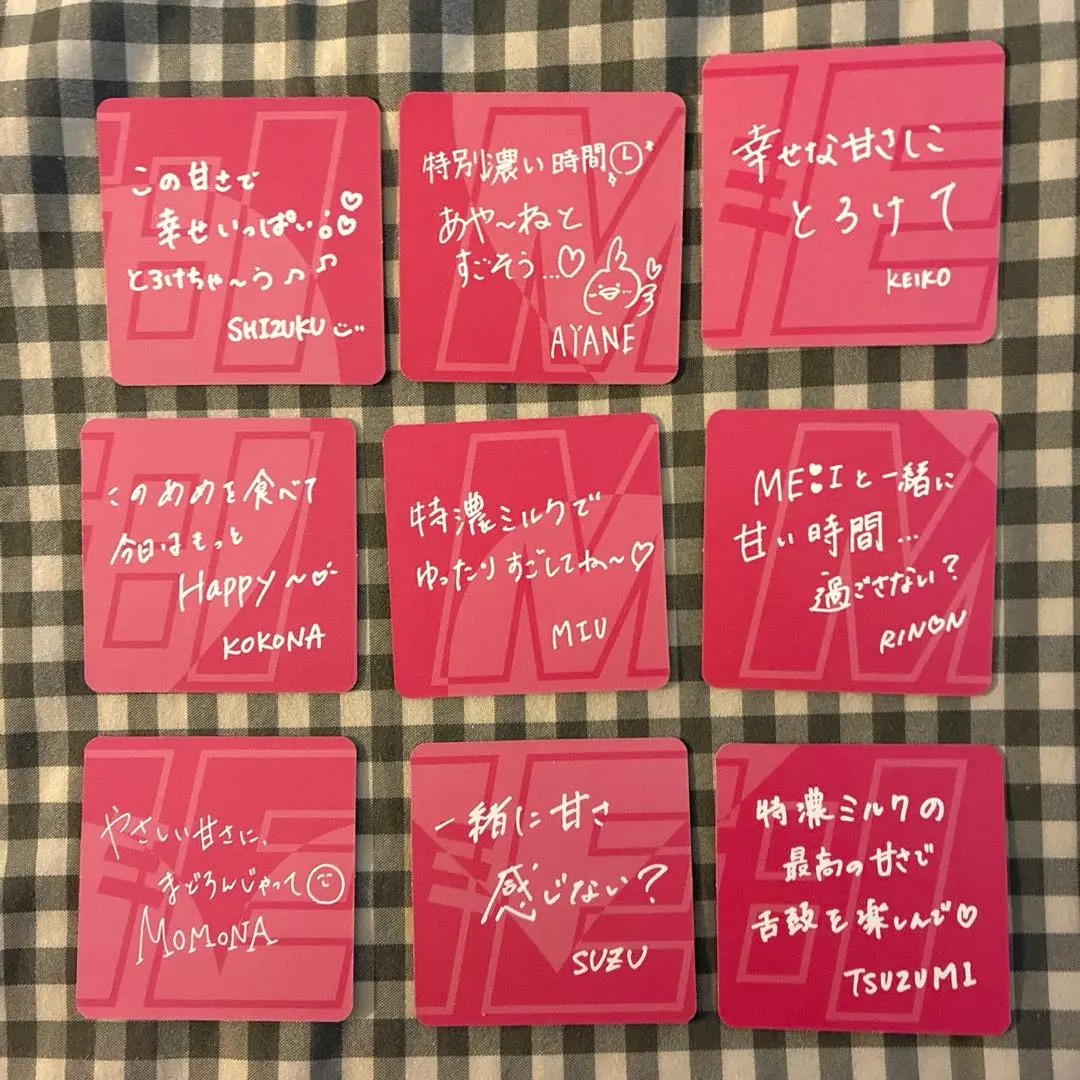 この甘さで
幸せいっぱい
とろけちゃ〜う♪♫
SHIZUKU
特別濃い時間
あや〜ねと
すごそう…♡
AYANE
幸せな甘さに
とろけて
KEIKO
このあめを食べて
今日はもっと
Happy〜♡
KOKONA
特濃ミルクで
ゆったりすごしてね〜♡
MIU
ME:Iと一緒に
甘い時間…
過ごさない?
RINON
やさしい甘さに、
まどろんじゃって
MOMONA
一緒に甘さ
感じない?
SUZU
特濃ミルクの
最高の甘さで
舌鼓を楽しんで♡
TSUZUMI